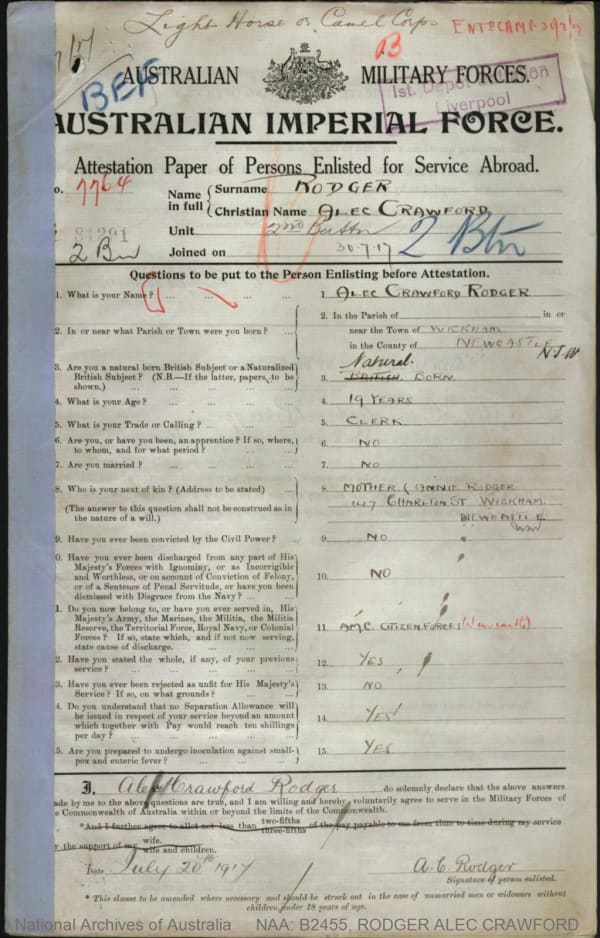 Light Horse or Camel Corps
ENTD CAMP
7/17
B
BEF
AUSTRALIAN MILITARY FORCES.
1st. Depot Battalion
Liverpool
AUSTRALIAN IMPERIAL FORCE.
Attestation Paper of Persons Enlisted for Service Abroad.
o. 7764
Name in full { Surname RODGER
Christian Name ALEC CRAWFORD
81291
Unit 2nd Battn
2 Bn
Joined on 30.7.17
2 Btn
Questions to be put to the Person Enlisting before Attestation.
1. What is your Name? ... ... ... ...
1 ALEC CRAWFORD RODGER
2. In or near what Parish or Town were you born? ...
2. In the Parish of in or
near the Town of WICKHAM
in the County of NEWCASTLE
N.S.W
3. Are you a natural born British Subject or a Naturalized
British Subject? (N.B.—If the latter, papers to be
shown.) ... ... ... ...
Natural
3. BRITISH BORN.
4. What is your Age? ... ... ... ...
4. 19 YEARS
5. What is your Trade or Calling? ... ... ...
5. CLERK
6. Are you, or have you been, an apprentice? If so, where,
to whom, and for what period? ... ...
6. NO
7. Are you married? ... ... ... ...
7. NO
8. Who is your next of kin? (Address to be stated) ...
(The answer to this question shall not be construed as in
the nature of a will.)
8. MOTHER (ANNIE RODGER
147 CHARLTON ST WICKHAM.
NEWCASTLE
NSW
9. Have you ever been convicted by the Civil Power?
9. NO
0. Have you ever been discharged from any part of His
Majesty's Forces with Ignominy, or as Incorrigible
and Worthless, or on account of Conviction of Felony,
or of a Sentence of Penal Servitude, or have you been
dismissed with Disgrace from the Navy? ... ...
10. NO
1. Do you now belong to, or have you ever served in, His
Majesty's Army, the Marines, the Militia, the Militia
Reserve, the Territorial Force, Royal Navy, or Colonial
Forces? If so, state which, and if not now serving,
state cause of discharge. ... ... ...
11. AMC. CITIZEN FORCES
2. Have you stated the whole, if any, of your previous
service? ... ... ... ...
12. YES
3. Have you ever been rejected as unfit for His Majesty's
Service? If so, on what grounds? ... ...
13. NO
4. Do you understand that no Separation Allowance will
be issued in respect of your service beyond an amount
which together with Pay would reach ten shillings
per day? ... ... ... ...
14. YES
5. Are you prepared to undergo inoculation against small-
pox and enteric fever? ... ... ...
15. YES
I, Alec Crawford Rodger do solemnly declare that the above answers
ade by me to the above questions are true, and I am willing and hereby voluntarily agree to serve in the Military Forces of
e Commonwealth of Australia within or beyond the limits of the Commonwealth.
*And I further agree to allot not less than two-fifths three-fifths of the pay payable to me from time to time during my service
r the support of my wife. wife and children.
Date July 20th 1917
A. C. Rodger
Signature of person enlisted.
* This clause to be amended where necessary and should be struck out in the case of unmarried men or widowers without
children under 18 years of age.
National Archives of Australia NAA: B2455, RODGER ALEC CRAWFORD